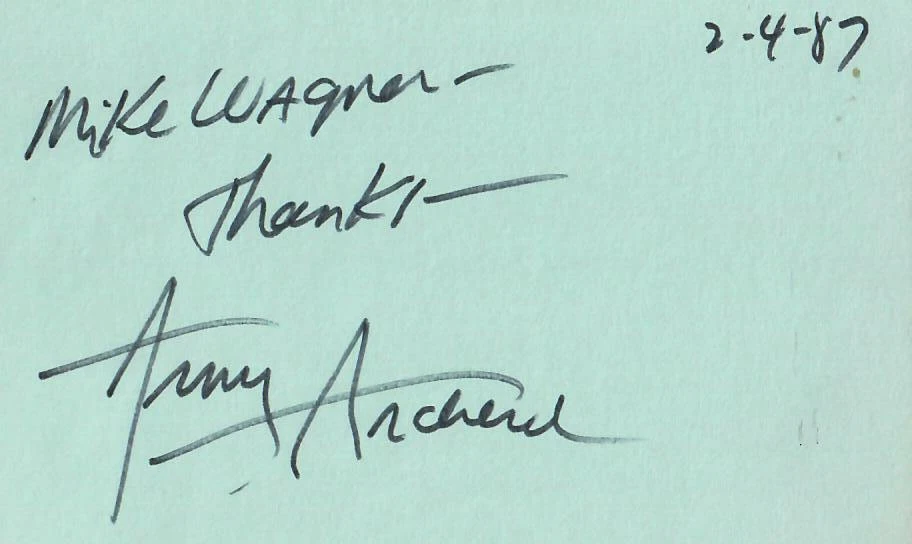 2-4-87
Mike Wagner-
Thanks-
Army Archerd